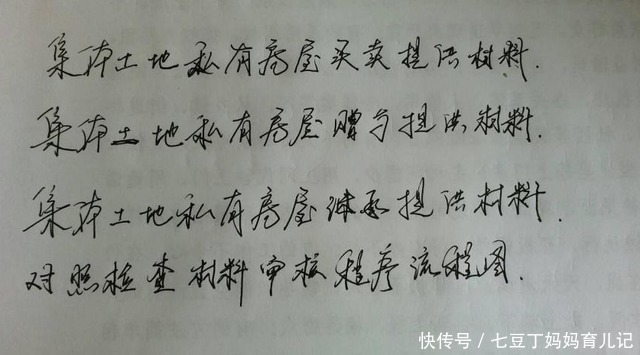 集体土地私有房屋买卖提供材料.
集体土地私有房屋赠与提供材料.
集体土地私有房屋继承提供材料.
对照检查材料审核程序流程图.
快传号／七豆丁妈妈育儿记